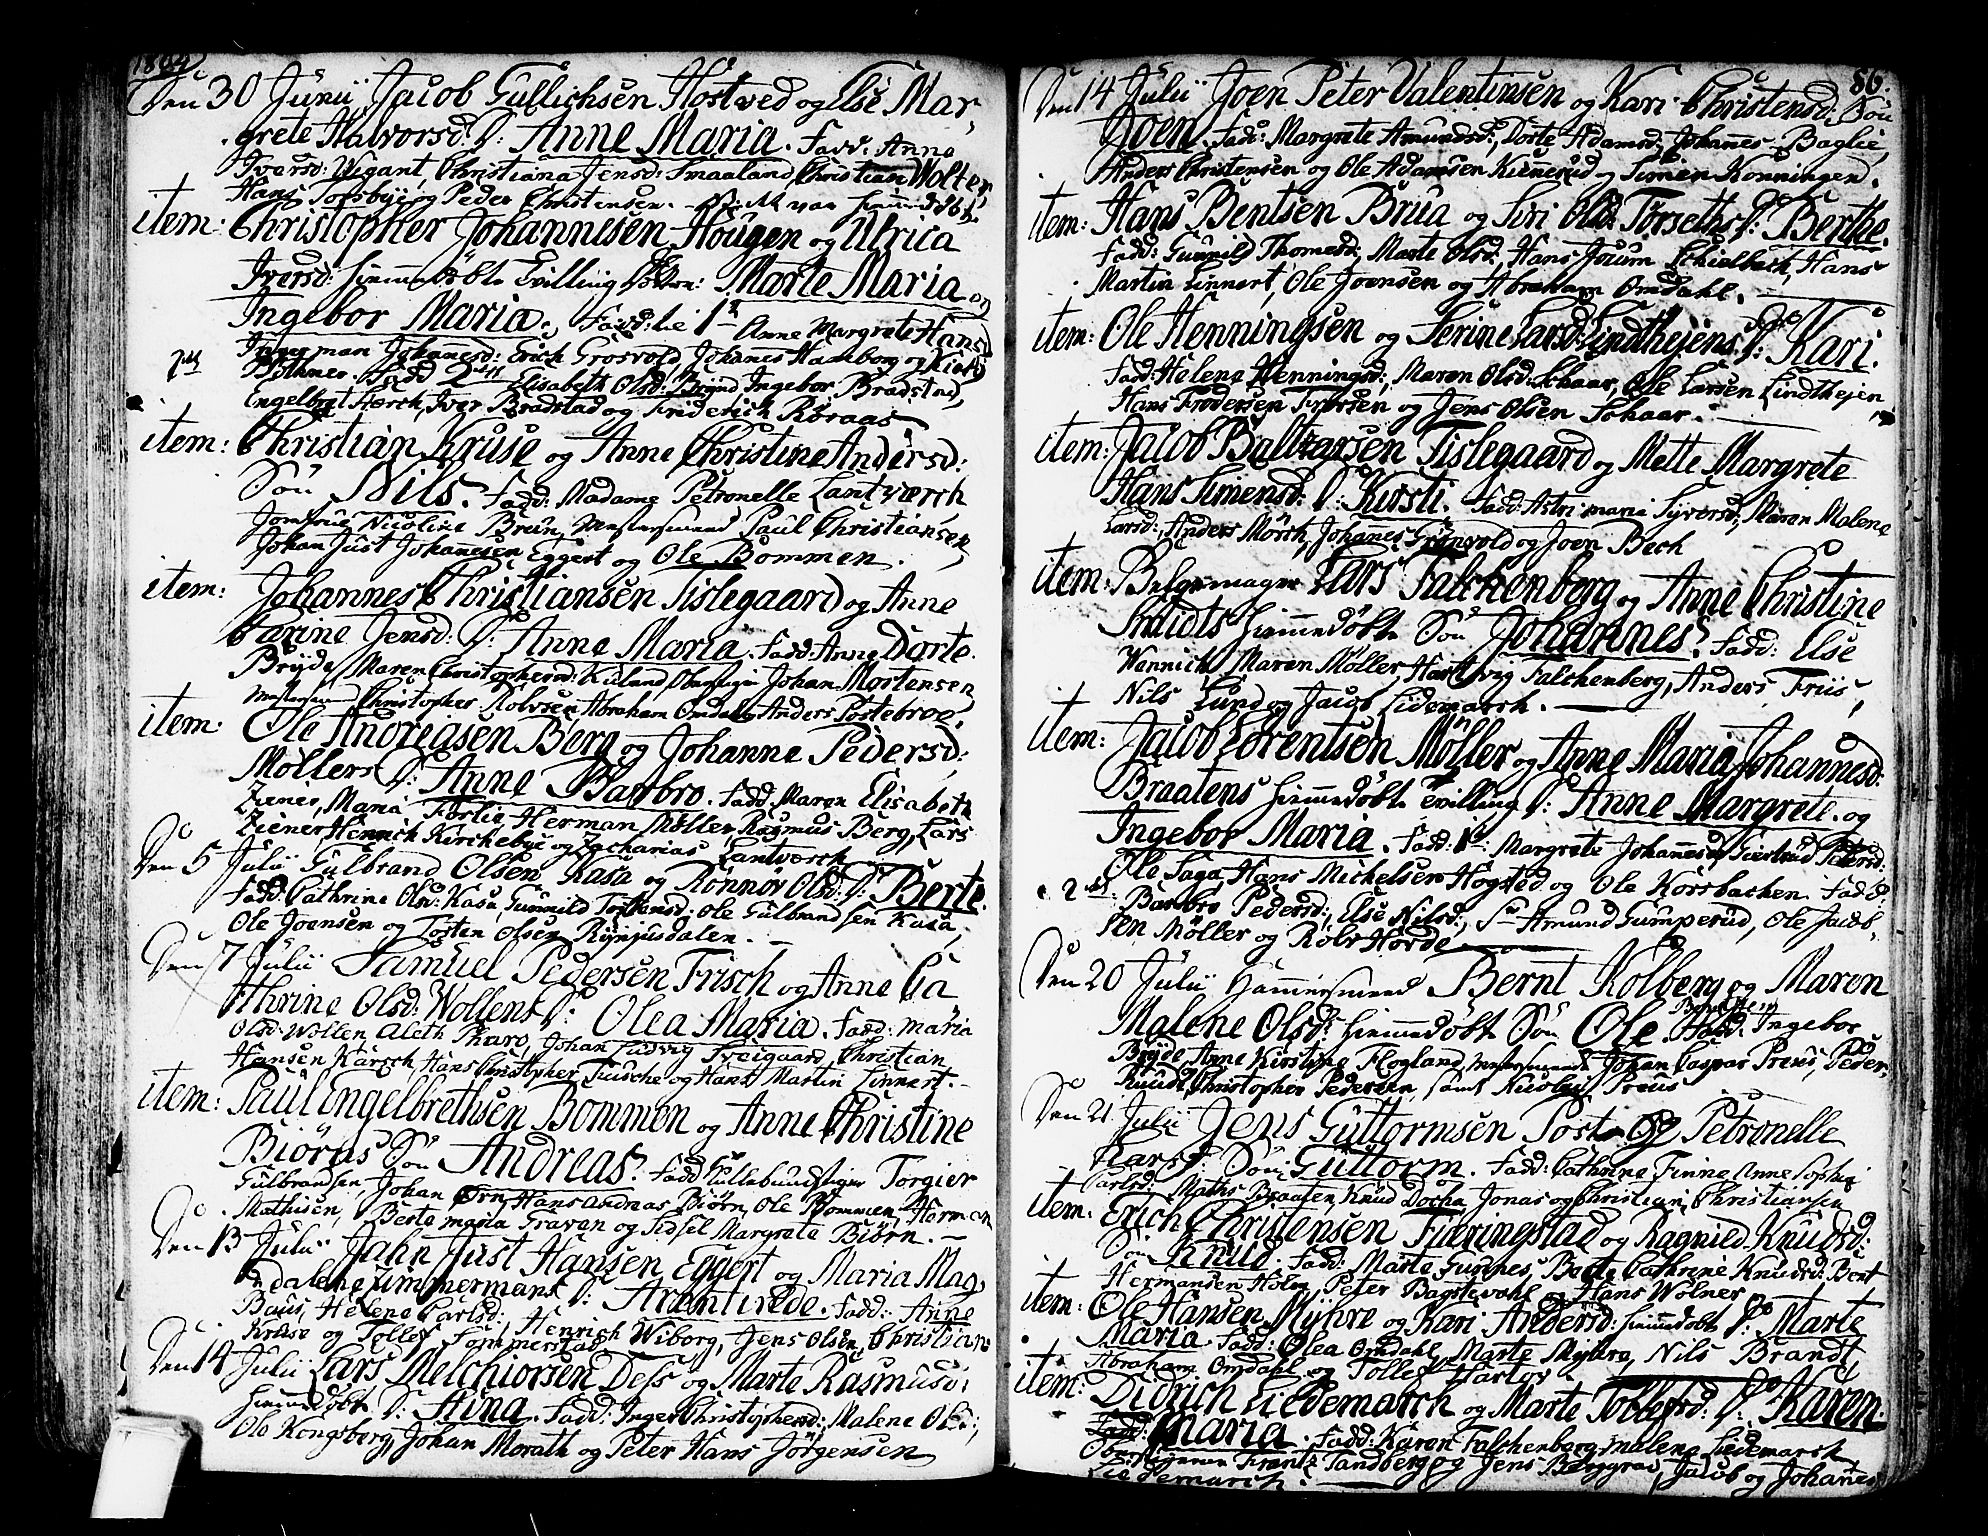 1804
Den 30 Junii Jacob Gullichsen Hostved og Else Mar-
grete Halvorsd: D: Anne Maria. Fadd: Anna
Iversd: Wigant, Christiana Jensd: Smaaland, Christian Wolter,
Hans Torsbye og Peder Christensen.
item: Christopher Johannesen Hougen og Ulrica
Iversd: hiemmedøbte Tvilling Døttre: Marte Maria og
Ingebor Maria. Fadd: til 1ste Anne Margrete Hans
Johannesd: Erich Grosvold, Johanes Hamborg og
Bøhmer. Fadd 2den Elisabeth Olsd: Brynd, Ingebor Bradstad,
Engelbret Færch, Iver Bradstad og Friderich Røraas
item: Christian Kruse og Anne Christine Andersd:
Søn Nils. Fadd: Madame Petronelle Lantværch
Jomfrue Nicoline Bruun, Mestersmed Paul Christiansen,
Johan Just Johannesen Eggert og Ole Bommen.
item: Johannes Christiansen Tislegaard og Anne
Carine Jensd: D: Anne Maria. Fadd: Anne Dorte
Bryde, Maren Christophersd: Kiøland Oberstiger Johan Mortensen
Christopher Robrsen Abraham Omdahl, Anders Postebroe.
item: Ole Andreasen Berg og Johanne Pedersd:
Møllers D: Anne Barbro. Fadd: Maren Elisabeth
Ziener, Maria Torlie Herman Møller, Rasmus Berg, Lars
Ziener Henrich Kirchebye og Zacharias Lantværch
Den 5 Julii Gulbrand Olsen Kasa og Rønnøv Olsd: D: Berte.
Fadd: Cathrine Olsd: Kasa, Gunnild Torstensd: Ole Gulbrandsen Kasa,
Ole Joensen og Tosten Olsen Rynjusdalen.
Den 7 Julii Samuel Pedersen Frisch og Anne Ca
thrine Olsd: Wollens D: Olea Maria. Fadd: Maria
Olsd: Wollen, Aleth Pharo, Johan Ludvig Sveigaard, Christian
Hansen Karsch, Hans Christopher Tusche og Hans Martin Linnert.
item: Paul Engelbrethsen Bommen og Anne Christine
Biørns Søn Andreas. Fadd Torgier
Gulbrandsen, Johan Ørn, Hans Andreas Biørn, Ole Bommen, Herman
Mathisen, Berte Maria Graven og Sidsel Margrete Biørn.
Den 13 Julii Jahn Just Hansen Eggert og Maria Mag-
dalena Zimmermans D: Arentinede. Fadd: Anne
Baus, Helene Carlsd: Henrich Wiborg, Jens Olsen, Christian
Kruse og Tollef Sommerstad
Den 14 Julii Lars Melchiorsen Dess og Marte Rasmusd:
hiemmedøbt D: Stina. Fadd: Inger Christophersd: Malene Olsd:
Ole Kongsberg, Johan Morath og Peter Hans Jörgensen
86.
Den 14 Julii Joen Peter Valentinsen og Kari Christensd: Søn
Joen. Fadd: Margrete Amundsd:, Dorte Adamsd, Johannes Baglie,
Anders Christensen og Ole Adamsen Kinnerud og Simen Konningen.
item: Hans Bentsen Brua og Siri Olsd: Torseths D: Berthe.
Fadd: Gunnild Thomesd: Marte Olsd: Hans Jorum Schielbach, Hans
Martin Linnert, Ole Joensen og Abraham Omdahl.
item: Ole Henningsen og Serine Larsd: Lindthejens D: Kari.
Fadd: Helene Henningsd:, Maren Olsd: Schaar, Ole Larsen Lindthejen
Hans Frodersen Frorsen og Jens Olsen Schaar.
item: Jacob Baltzarsen Tislegaard og Mette Margrete
Hans Simensd: D: Kirsti. Fadd: Astri Maria Syversd:, Maren Malene
Larsd: Anders Mørch, Johannes Grønvold og Joen Bech
item: Belgemager Lars Falchenberg og Anne Christine
Smidts hiemmedøbte Søn Johannes. Fadd: Else
Wannich, Maren Møller, Hartvig Falchenberg, Anders Friis,
Nils Lund og Jacob Lidemarch.
item: Jacob Lorentsen Møller og Anne Maria Johannesd:
Braatens hiemmedøbte Tvilling D: Anne Margrete og
Ingebor Maria. Fadd: 1st: Margrete Johannesd, Giertrud Pedersd:
Ole Saga, Hans Michelsen Hogsted og Ole Korsbachen. Fadd:
2den: Barbro Pedersd:, Else Nilsd:, Sr Amund Gumperud, Ole Jacob-
sen Møller og Robr Horde
Den 20 Julii Hammersmed Bernt Kolberg og Maren
Malene Olsd: hiemmedøbt Søn Ole. Fadd: Ingebor
Bryde, Anne Kirstine Flogland, Mestersmed Johan Caspar Preus, Peder
Knudt, Christopher Pedersen, samt Nicolay Preus
Den 21 Julii Jens Guttormsen Post og Petronelle
Larsd: Søn Guttorm. Fadd: Cathrine Finne, Anne Sophie
Carlsd: Maths Braaten, Knud Docha, Jonas og Christian Christiansen
item: Erich Christensen Fiæringstad og Ragnild Knudsd:
Søn Knud. Fadd: Marte Gunnes, Berte Cathrine Knudsd: Bent
Hermansen Holm, Peter Bagstevold og Hans Wolner
item: Ole Hansen Myhre og Kari Andersd: hiemmedøbt D: Marte
Maria. Fadd: Olea Omdahl, Marte Myhre, Nils Brandt,
Abraham Omdahl og Tollef Hartov
item: Didrich Liedemarch og Marte Tollefsd: D: Karen
Maria. Fadd: Karen Falchenberg, Malena Liedemarch,
Frantz Sandberg og Jens Berggrav, Jacob og Johannes
Liedemarch.